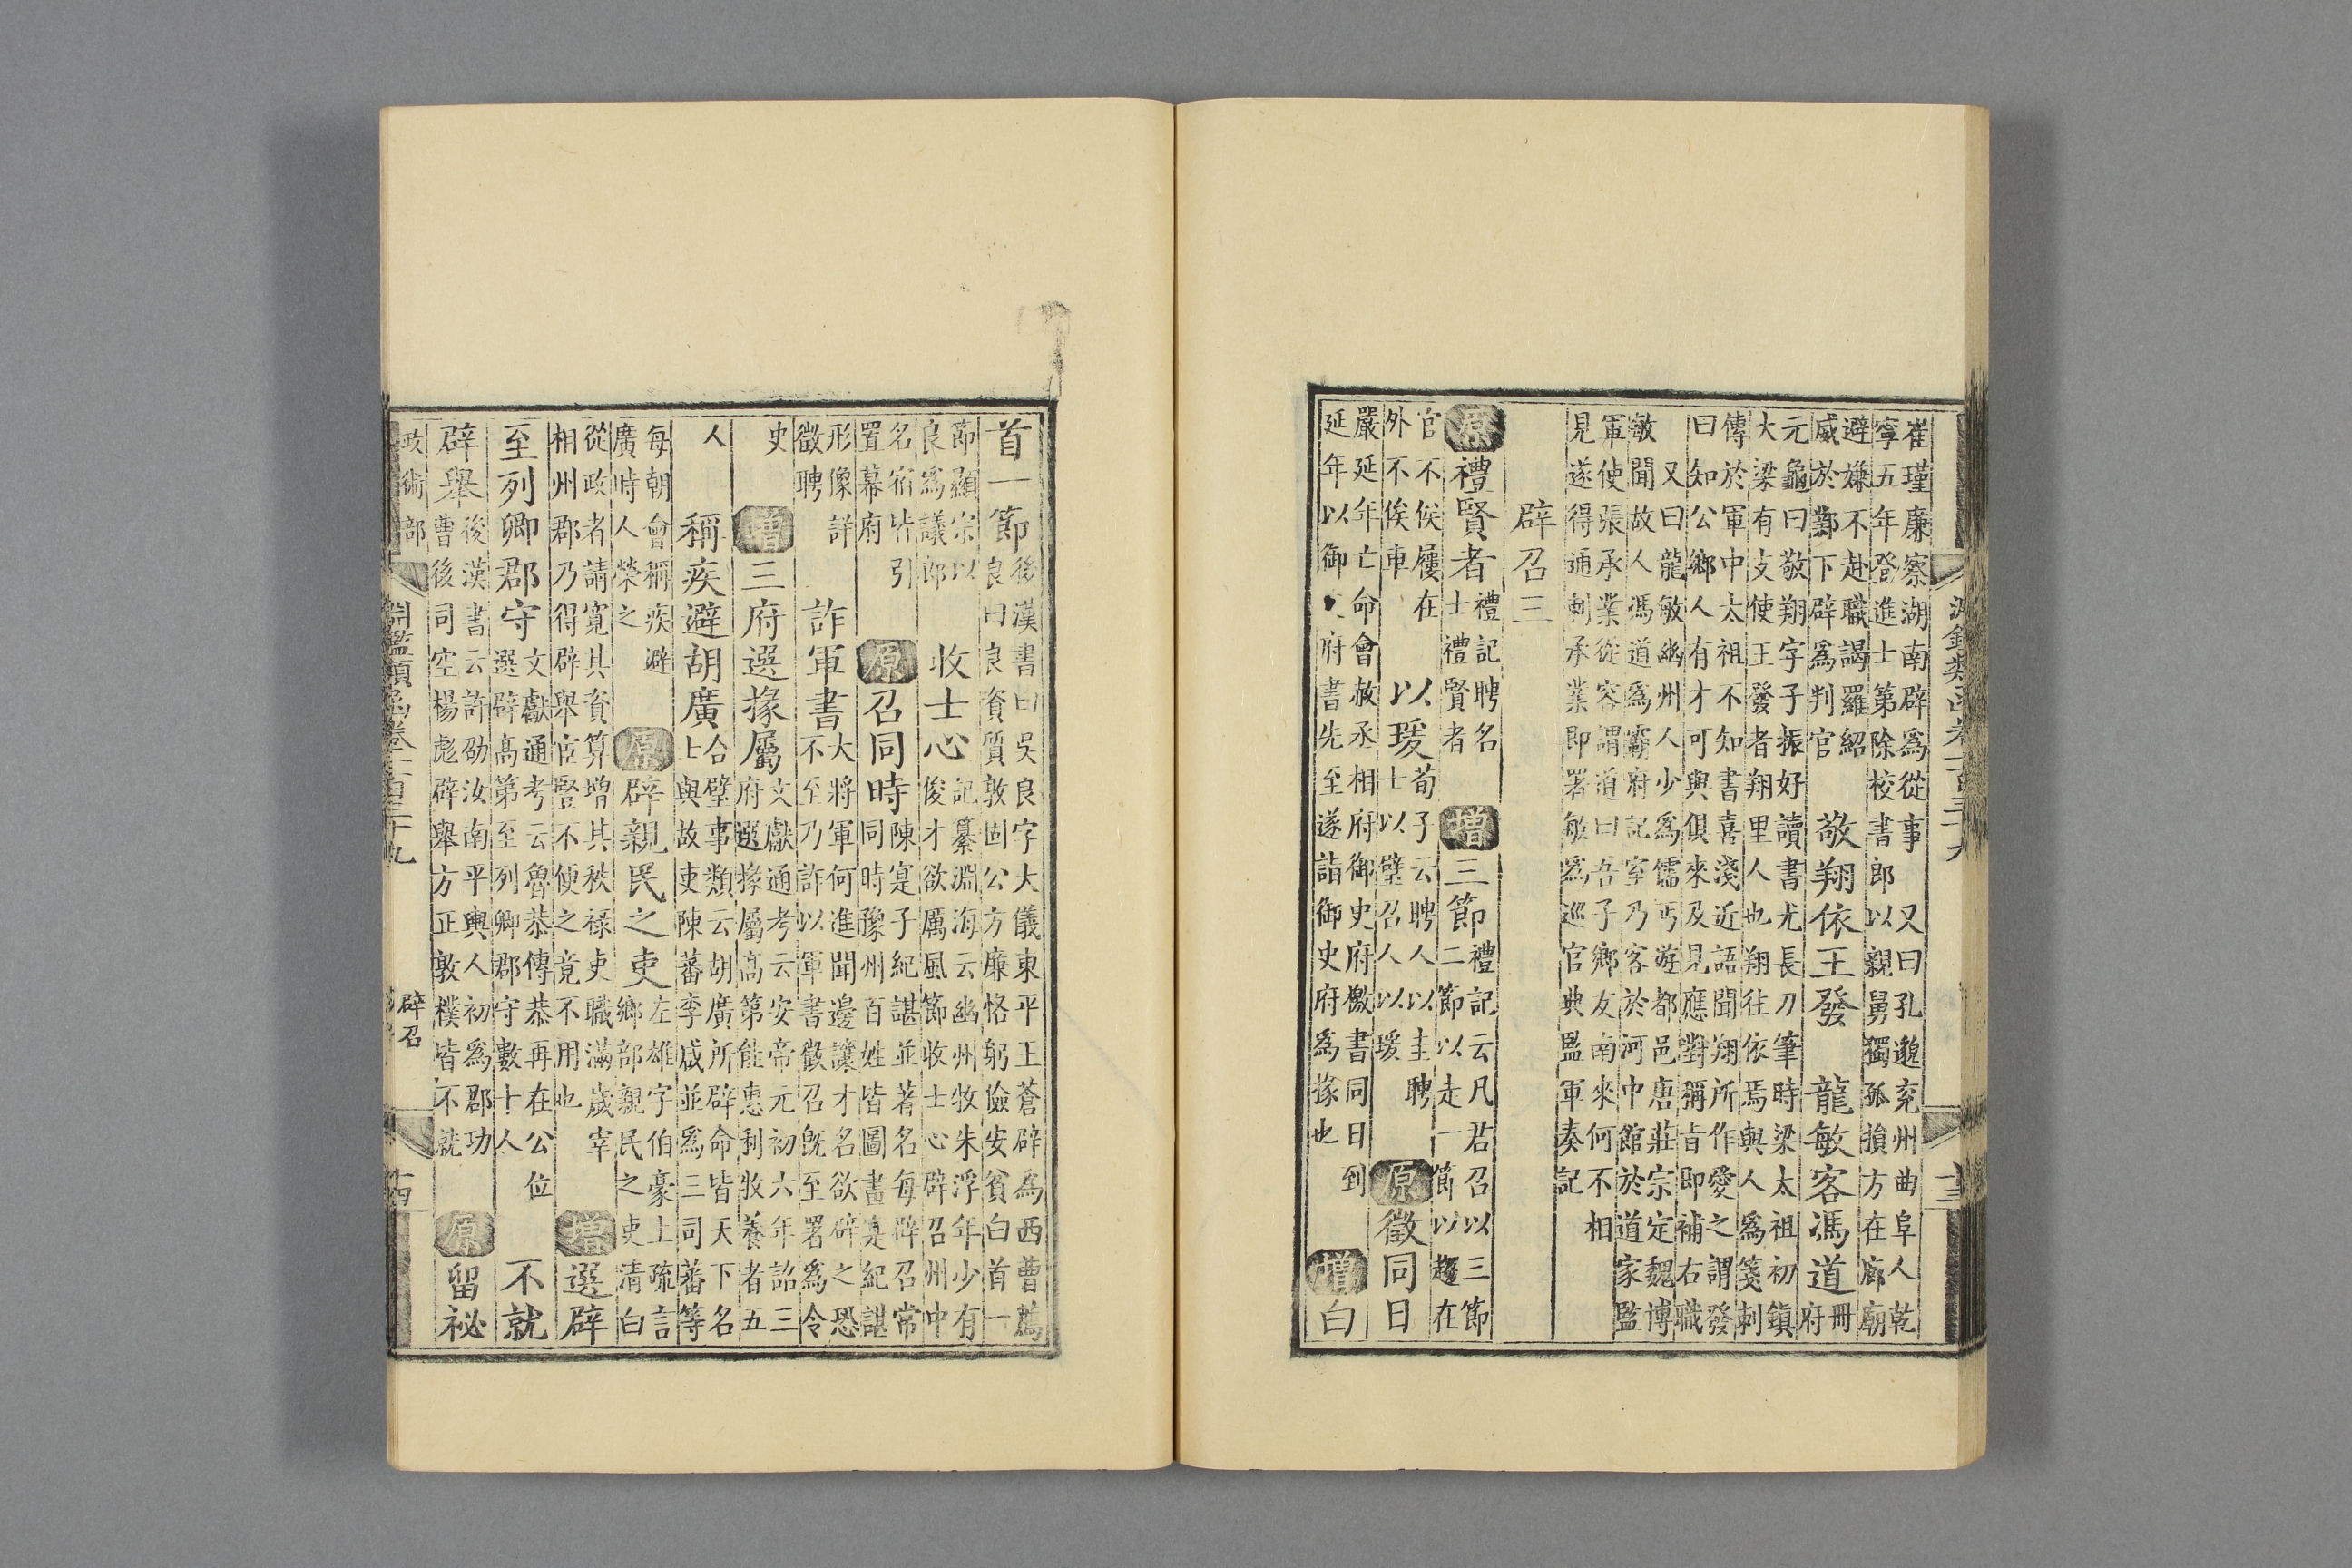 淵鑑類函卷一百三十九
十三
崔瑾廉察湖南辟為從事　又曰孔邈兖州曲阜人乾
寧五年登進士第除校書郎以親舅獨孤損方在廊廟
避嫌不赴職謁羅紹
威於鄴下辟為判官
敬翔依王發　龍敏客馮道
冊
府
元龜曰敬翔字子振好讀書尤長刀筆時梁太祖初鎮
大梁有支使王發者翔里人也翔往依焉與人為箋刺
傳於軍中太祖不知書喜淺近語聞翔所作愛之謂發
曰知公鄉人有才可與俱來及見應對稱旨即補右職
又曰龍敏幽州人少為儒丐遊都邑唐莊宗定魏博
敏聞故人馮道為霸府記室乃客於河中館於道家監
軍使張承業從容謂道曰吾子鄉友南來何不相
見遂得通刺承業即署敏為巡官典監軍奏記
辟召三
原禮賢者
禮記聘名
士禮賢者
增三節
禮記云凡君召以三節
二節以走一節以趨在
官不候屨在
外不俟車
以瑗
荀子云聘人以圭聘
士以璧召人以瑗
原徵同日
嚴延年亡命會赦丞相府御史府檄書同日到
延年以御　府書先至遂詣御史府為掾也
增白
首一節
後漢書曰吳良字大儀東平王蒼辟為西曹薦
良曰良資質敦固公方廉恪躬儉安貧白首一
節顯宗以
良為議郎
收士心
記纂淵海云幽州牧朱浮年少有
俊才欲厲風節收士心辟召州中
名宿皆引
置幕府
原召同時
陳寔子紀諶並著名每辟召常
同時豫州百姓皆圖畫寔紀諶
形像詳
徵聘
詐軍書
大將軍何進聞邊讓才名欲辟之恐
不至乃詐以軍書徵召既至署為令
史
增三府選掾屬
文獻通考云安帝元初六年詔三
府選掾屬高第能惠利牧養者五
人
稱疾避胡廣
合璧事類云胡廣所辟命皆天下名
士與故吏陳蕃李咸並為三司蕃等
每朝會稱疾避
廣時人榮之
原辟親民之吏
左雄字伯豪上疏言
鄉部親民之吏清白
從政者請寬其資算增其秩祿吏職滿歲宰
相州郡乃得辟舉宦豎不便之竟不用也
增選辟
至列卿郡守
文獻通考云魯恭傳恭再在公位
選辟高第至列卿郡守數十人
不就
辟舉
後漢書云許劭汝南平輿人初為郡功
曹後司空楊彪辟舉方正敦樸皆不就
原留祕
政術部
淵鑑類函卷一百三十九
辟召
十四